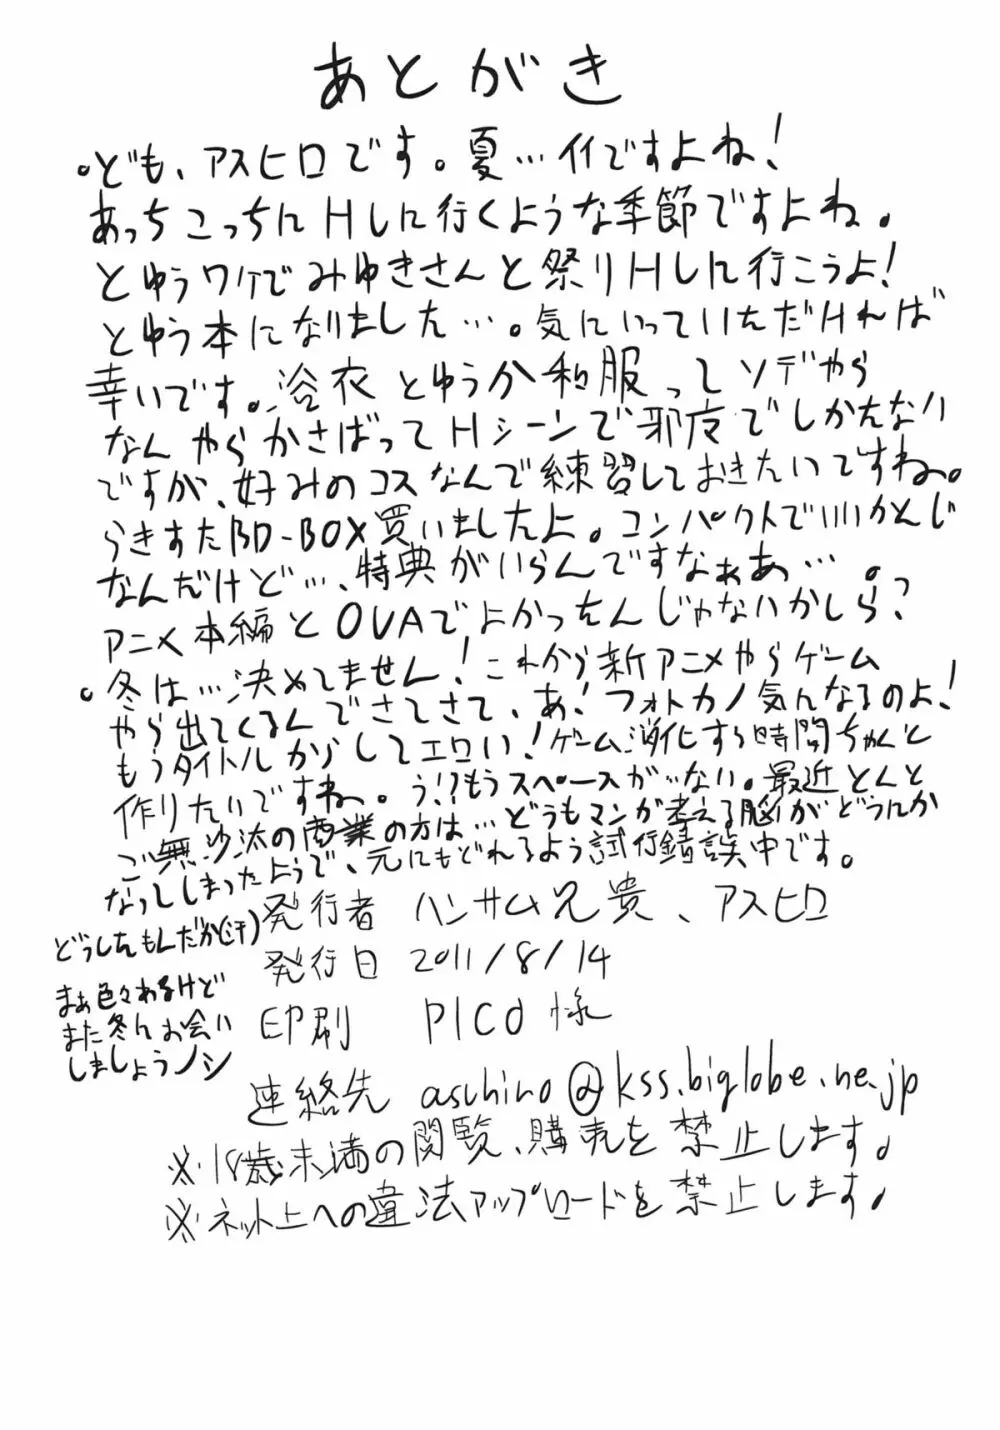 あとがき
。ども、アスヒロです。夏…イイですよね!
あっちこっちにHしに行くような季節ですよね。
とゆうワケでみゆきさんと祭りHしに行こうよ!
とゆう本になりました…。気にいっていただければ
幸いです。浴衣とゆうか和服ってソデやら
なんやらかさばってHシーンで邪广でしかたない
ですが、好みのコスなんで練習しておきたいですね。
らきすたBD-BOX買いましたよ。コンパクトでいいかんじ
なんだけど…、特典がいらんですなぁあ…。
アニメ本編とOVAでよかったんじゃないかしら?
。冬は…決めてません!これから新アニメやらゲーム
やら出てくるんでさてさて、あ!フォトカノ気になるのよ!
もうタイトルからしてエロい!ゲーム消化する時間ちゃんと
作りたいですね。う!?もうスペースが…ない。最近とんと
ご無沙汰の商業の方は…どうもマンガ考える脳がどうにか
なってしまったようで、元にもどれるよう試行錯誤中です。
どうしたもんだか(汗)
まぁ色々あるけど
また冬にお会い
しましょうノシ
発行者 ハンサム兄貴、アスヒロ
発行日 2011/8/14
印刷 PICO様
連絡先 aschiro@kss.biglobe.ne.jp
※18歳未満の閲覧、購売を禁止します。
※ネット上への違法アップロードを禁止します。